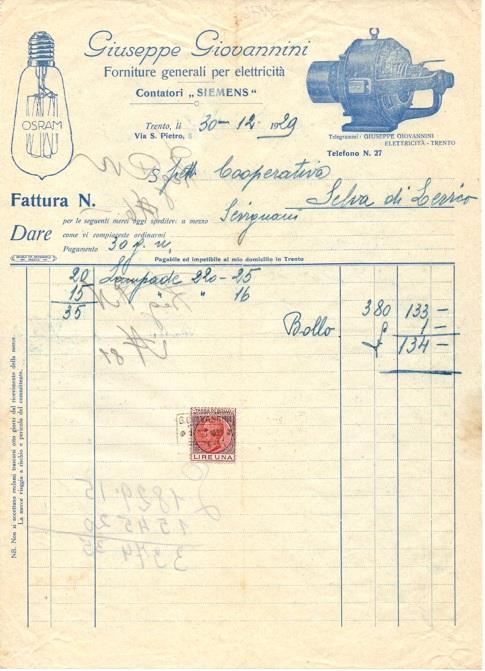 Giuseppe Giovannini
Forniture generali per elettricità
Contatori „SIEMENS“
OSRAM
Trento, li 30-12-1929
Via S. Pietro,
Telegrammi: GIUSEPPE GIOVANNINI
ELETTRICITÀ - TRENTO
Telefono N. 27
Spett Cooperativa
Selva di
Fattura N.
per le seguenti merci oggi speditevi a mezzo
Dare come vi compiaceste ordinarmi
Pagamento 30 g.
Pagabile ed impetibile al mio domicilio in Trento
20 Lampade 220-25
15 " " 16 380 133 —
35 Bollo 1 —
134 —
LIRE UNA
1829.15
1545.20
3374.35
NB. Non si accettano reclami trascorsi otto giorni dal ricevimento della merce.
La merce viaggia a rischio e pericolo del committente.